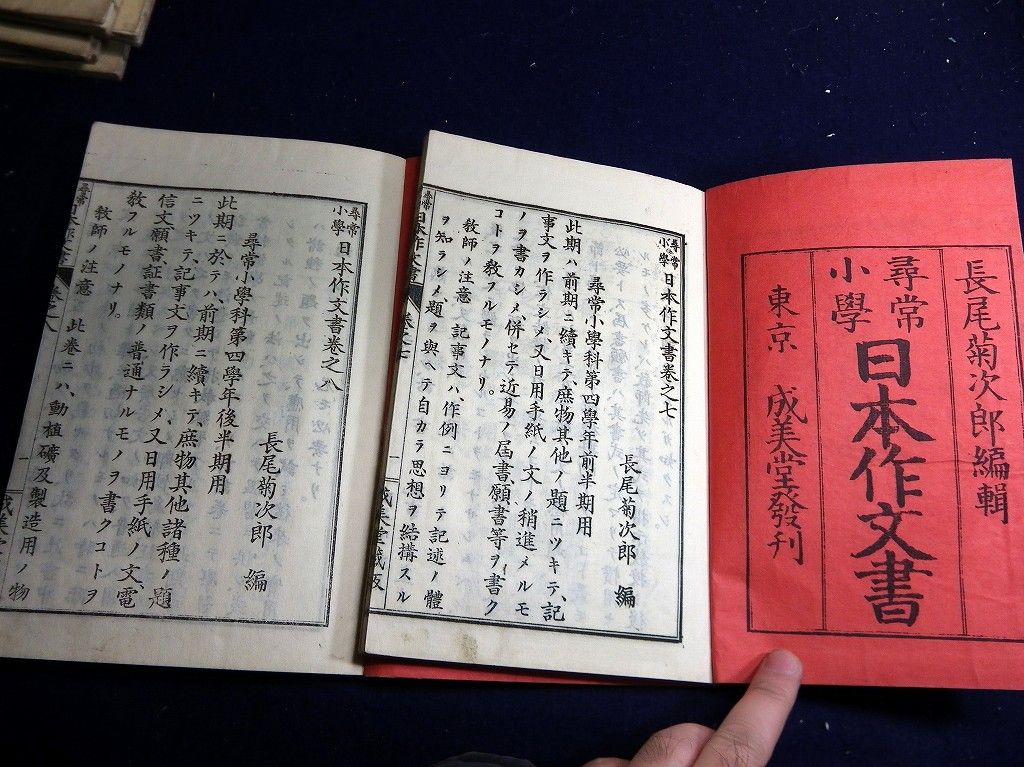 長尾菊次郎編輯
尋常
小學
日本作文書
東京 成美堂發刊
尋常
小學
日本作文書卷之七
長尾菊次郎 編
尋常小學科第四學年前半期用
此期ハ前期ニ續キテ、庶物其他ノ題ニツキテ、記
事文ヲ作ラシメ、又日用手紙ノ文ノ稍進メルモ
ノヲ書カシメ、併セテ近易ノ屆書、願書等ヲ書ク
コトヲ敎フルモノナリ。
敎師ノ注意 記事文ハ、作例ニヨリテ記述ノ體
ヲ知ラシメ、題ヲ與ヘテ自カラ思想ヲ結構スル
尋常
日本作文書
卷之七
一
尋常
小學
日本作文書卷之八
長尾菊次郎 編
尋常小學科第四學年後半期用
此期ニ於テハ、前期ニ續キテ、庶物其他諸種ノ題
ニツキテ、記事文ヲ作ラシメ、又日用手紙ノ文、電
信文、願書証書類ノ普通ナルモノヲ書クコトヲ
敎フルモノナリ。
敎師ノ注意 此卷ニハ、動植礦及製造用ノ物
尋常
一